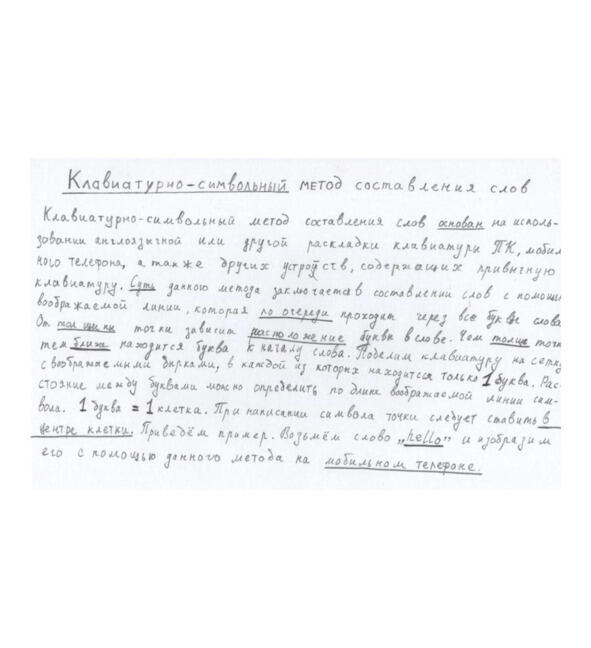 Клавиатурно-символьный метод составления слов
Клавиатурно-символьный метод составления слов основан на исполь-
зовании англоязычной или другой раскладки клавиатуры ПК, мобиль
ного телефона, а также других устройств, содержащих привычную
клавиатуру. Суть данного метода заключается в составлении слов с помощью
воображаемой линии, которая по очереди проходит через все буквы слова.
От толщины точки зависит расположение буквы в слове. Чем толще точка
тем ближе находится буква к началу слова. Поделим клавиатуру на сетку
с воображаемыми дырками, в каждой из которых находится только 1 буква. Рас-
стояние между буквами можно определить по длине воображаемой линии сим-
вола. 1 буква = 1 клетка. При написании символа точки следует ставить в
центре клетки. Приведём пример. Возьмём слово „hello" и изобразим
его с помощью данного метода на мобильном телефоне.